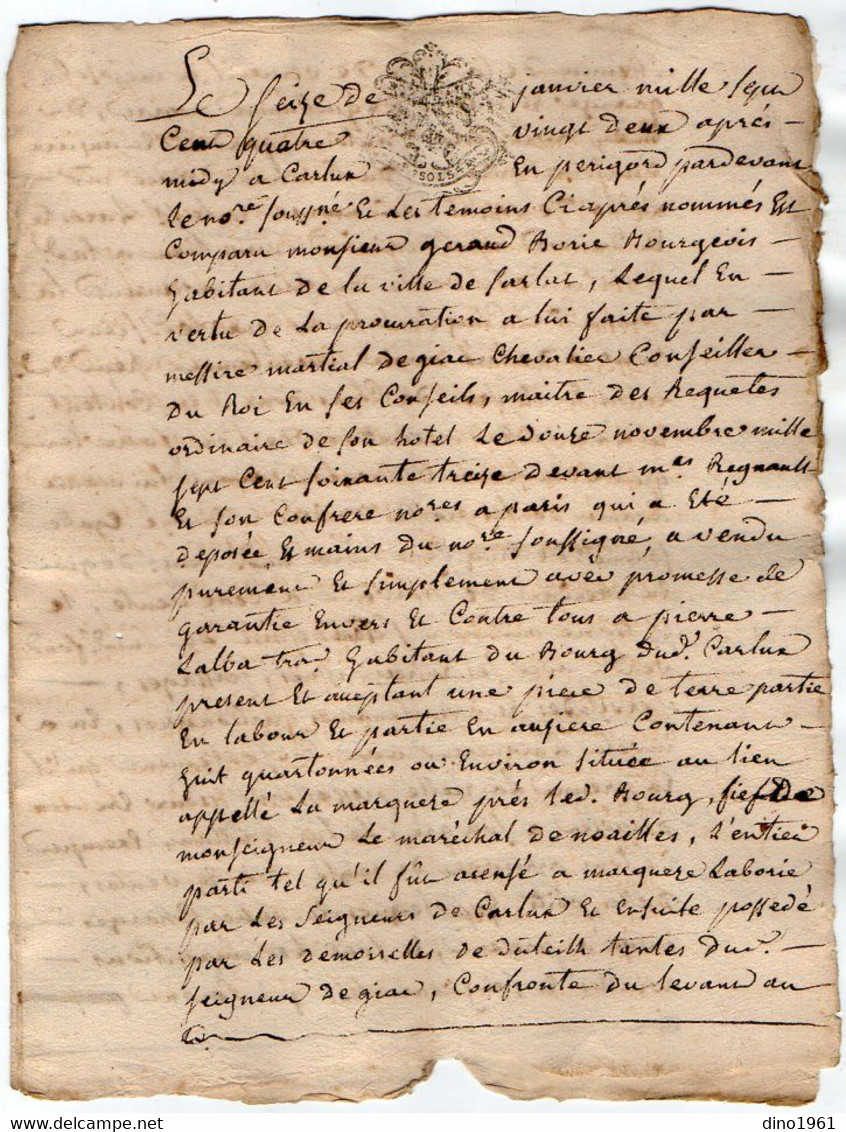 Le seize de janvier mille sept
Cent quatre vingt deux aprés –
midy a Carlux En perigord pardevant
le no.re soussné Et Les temoins Ciaprés nommés Est
Comparu monsieur gerand Borie Bourgeois –
habitant de la ville de sarlat, Lequel En –
vertu de La procuration a lui faite par –
messire martial de giac Chevalier Conseiller –
Du Roi En ses Conseils, maitre des Requetes
ordinaire de son hotel Le douze novembre mille
sept Cent soixante treize devant m.es Regnault
Et son Confrere no.res a paris qui a Eté –
deposée Es mains du no.re soussigné, a vendu
purement Et simplement avec promesse de
garantie Envers Et Contre tous a pierre –
Lalba tra.r habitant du Bourg dud.t Carlux
present Et aceptant une piece de terre partie
En labour Et partie En ausiere Contenant –
huit quartonnées ou Environ située au lieu
appellé La marquese prés led. Bourg, fief De
monseigneur Le maréchal de noailles, L'entier
parti tel qu'il fût acensé a marquese Laborie
par Les seigneurs de Carlux Et Ensuite possedé
par Les demoiselles de duteilh tantes dud.t –
seigneur de giac, Confronte du levant au
SOLS
dino1961